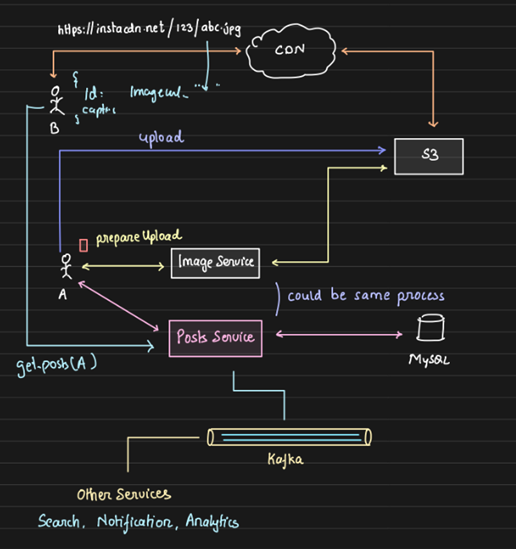 https://instacdn.net/123/abc.jpg
CDN
{
Id: Imageurl- "..."
captn:
}
B
upload
S3
prepare Upload
Image Service
A
) could be same process
Posts Service
get-posts(A)
MySQL
Kafka
Other Services
Search, Notification, Analytics